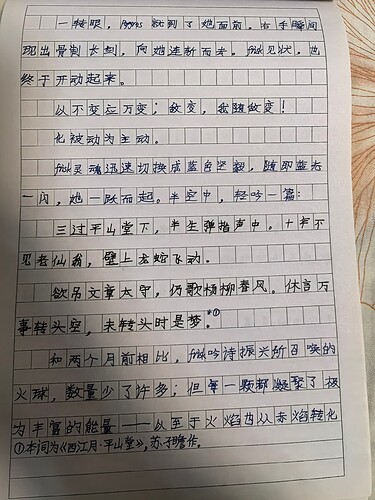 一转眼，就到了她面前，右手瞬间
现出骨制长剑，向她连斩而来。见状，也
终于开动起来。
以不变应万变；敌变，我随敌变！
化被动为主动。
灵魂迅速切换成蓝色坚韧，随即蓝光
一闪，她一跃而起。半空中，轻吟一篇：
三过平山堂下，半生弹指声中。十年不
见老仙翁，壁上龙蛇飞动。
欲吊文章太守，仍歌杨柳春风。休言万
事转头空，未转头时是梦。*①
和两个月前相比，吟诗振兴所召唤的
火球，数量少了许多；但每一颗都凝聚了极
为丰富的能量——以至于火焰由从赤焰转化
①本词为《西江月·平山堂》，苏子瞻作。